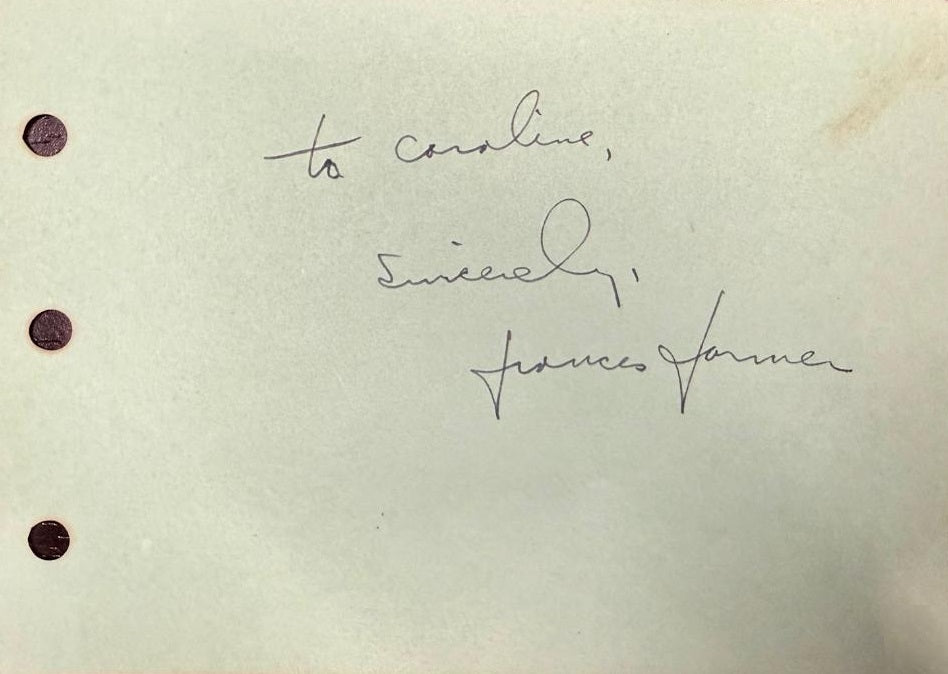 to Caroline,
Sincerely,
Frances Farmer